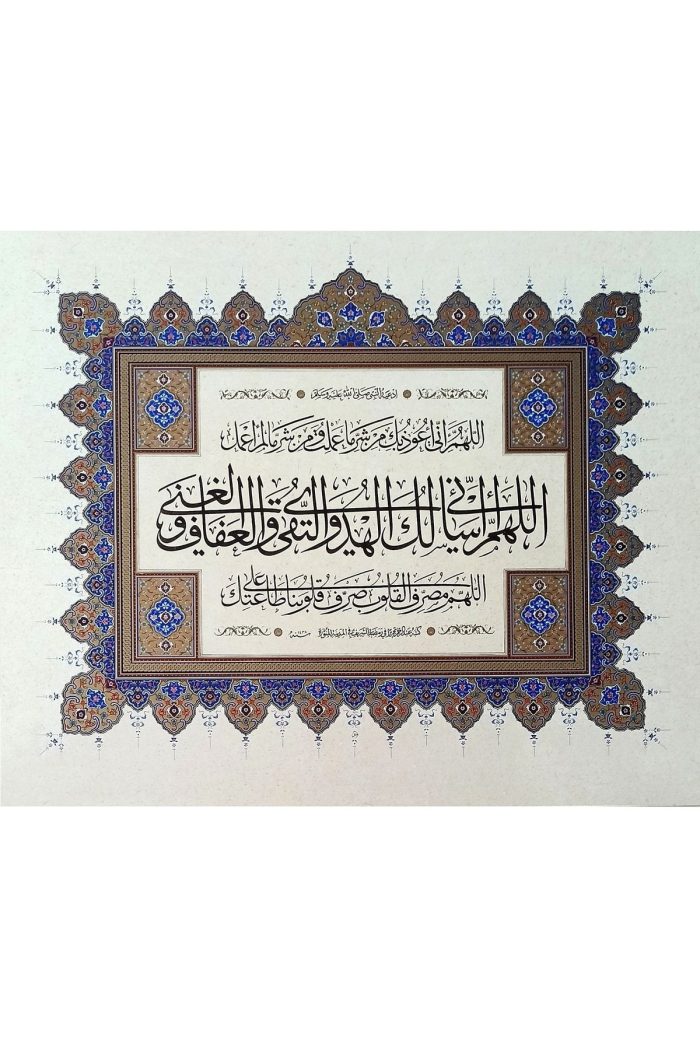 ادعية النبي صلى الله عليه وسلم
اللهم إني أعوذ بك من شر ما عملت ومن شر ما لم أعمل
اللهم إني أسألك الهدى والتقى والعفاف والغنى
اللهم مصرف القلوب صرف قلوبنا على طاعتك